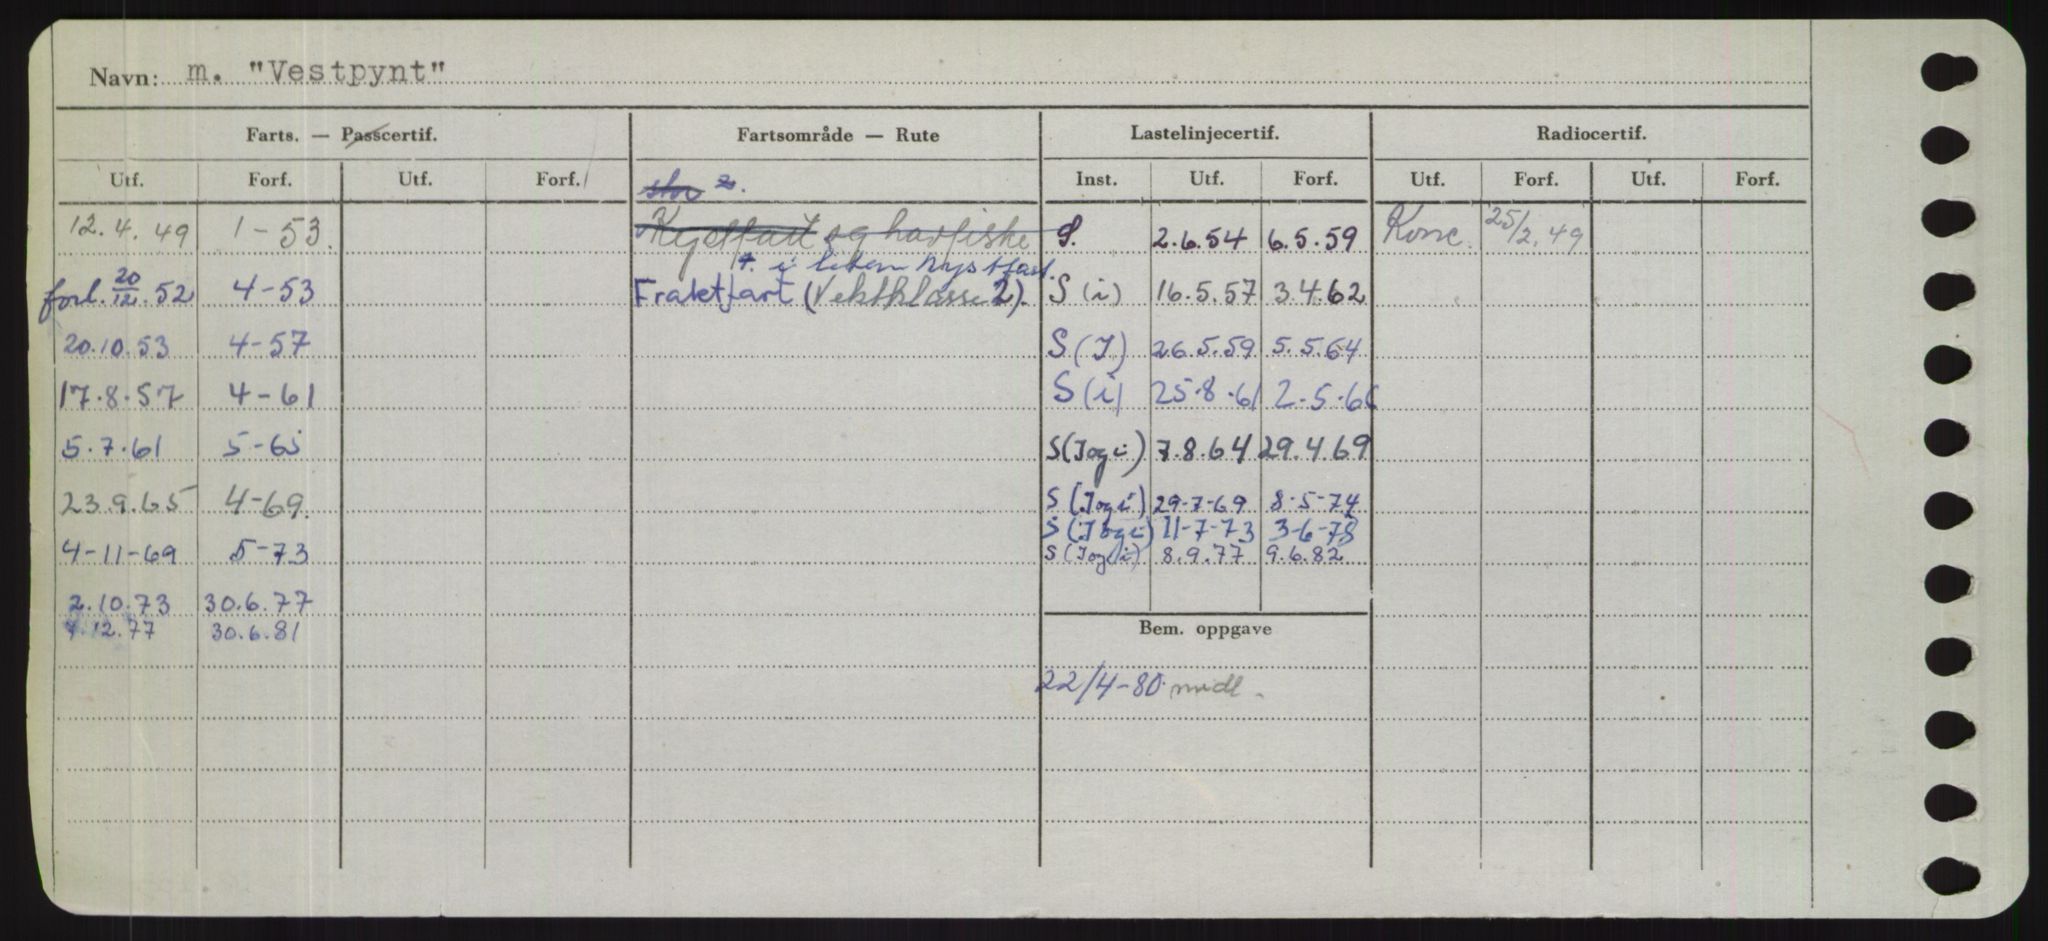 Navn: m. "Vestpynt"
Farts. — Passcertif. Fartsområde — Rute Lastelinjecertif. Radiocertif.
Utf. Forf. Utf. Forf. Inst. Utf. Forf. Utf. Forf. Utf. Forf.
stor 2.
12.4.49 1-53. Kystfart og havfiske S. 2.6.54 6.5.59 Konc. 25/2.49
i liten kystfart.
forl. 20/12.52 4-53 Fraktfart (Vektklasse 2). S (i) 16.5.57 3.4.62
20.10.53 4-57 S (I) 26.5.59 5.5.64
17.8.57 4-61 S (i) 25.8.61 2.5.66
5.7.61 5-65 S (I og i) 7.8.64 29.4.69
23.9.65 4-69. S (I og i) 29-7-69 8-5-74
S (I og i) 11-7-73 3-6-78
4-11-69 5-73 S (I og i) 8.9.77 9.6.82
2.10.73 30.6.77
12.77 30.6.81
Bem. oppgave
22/4-80 midl.